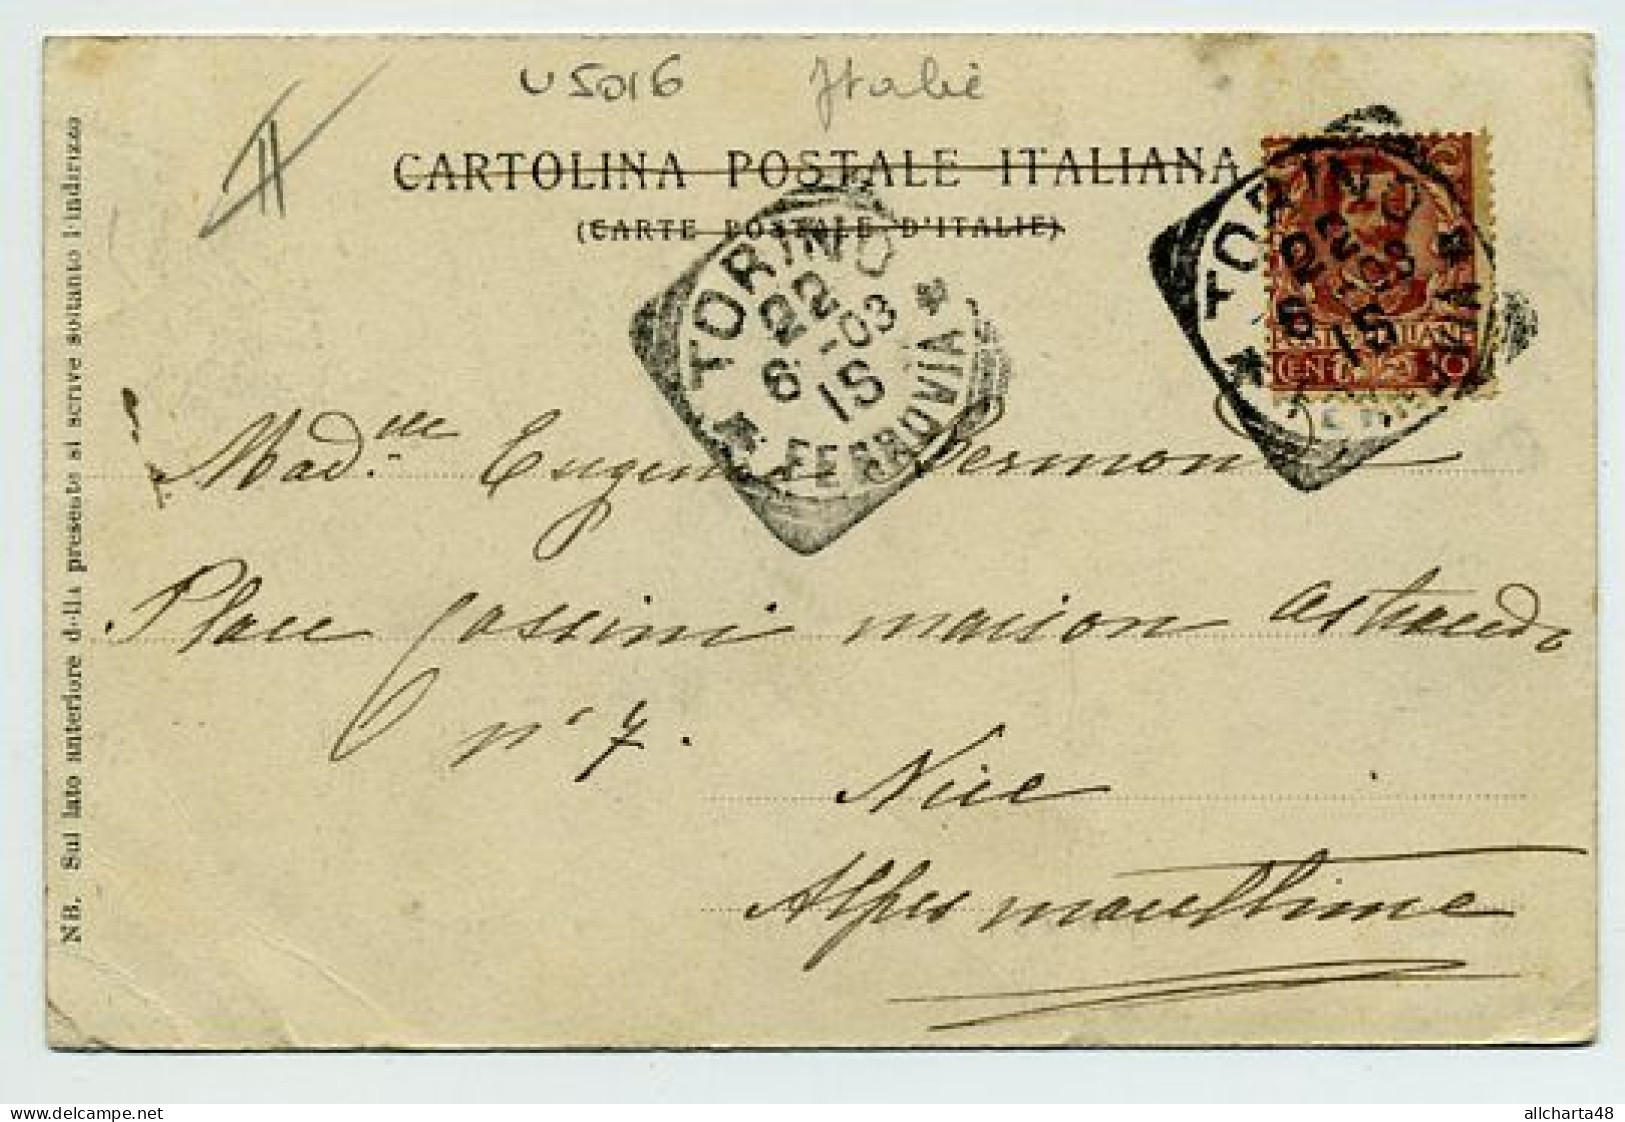 U5016 Italie
CARTOLINA POSTALE ITALIANA
(CARTE POSTALE D'ITALIE)
TORINO
22
6 -03
1S
* FERROVIA *
TORINO
22
6 -03
1S
POSTE ITALIANE
CENT. 10
Mad.lle Eugenie
Place Cassini maison Astraudo
n° 7.
Nice
Alpes maritime
NB. Sul lato anteriore della presente si scrive soltanto l'indirizzo
allcharta48
delcampe.net